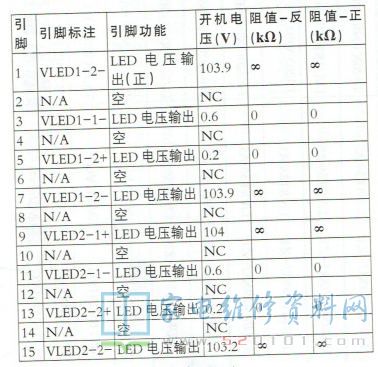 引脚 引脚标注 引脚功能 开机电压(V) 阻值-反(kΩ) 阻值-正(kΩ)
1 VLED1-2- LED 电压输出(正) 103.9 ∞ ∞
2 N/A 空 NC
3 VLED1-1- LED 电压输出 0.6 0 0
4 N/A 空 NC
5 VLED1-2+ LED 电压输出 0.2 0 0
6 N/A 空 NC
7 VLED1-2- LED 电压输出 103.9 ∞ ∞
8 N/A 空 NC
9 VLED2-1+ LED 电压输出 104 ∞ ∞
10 N/A 空 NC
11 VLED2-1- LED 电压输出 0.6 0 0
12 N/A 空 NC
13 VLED2-2+ LED 电压输出 0.2 0 0
14 N/A 空 NC
15 VLED2-2- LED 电压输出 103.2 ∞ ∞
家电维修资料网